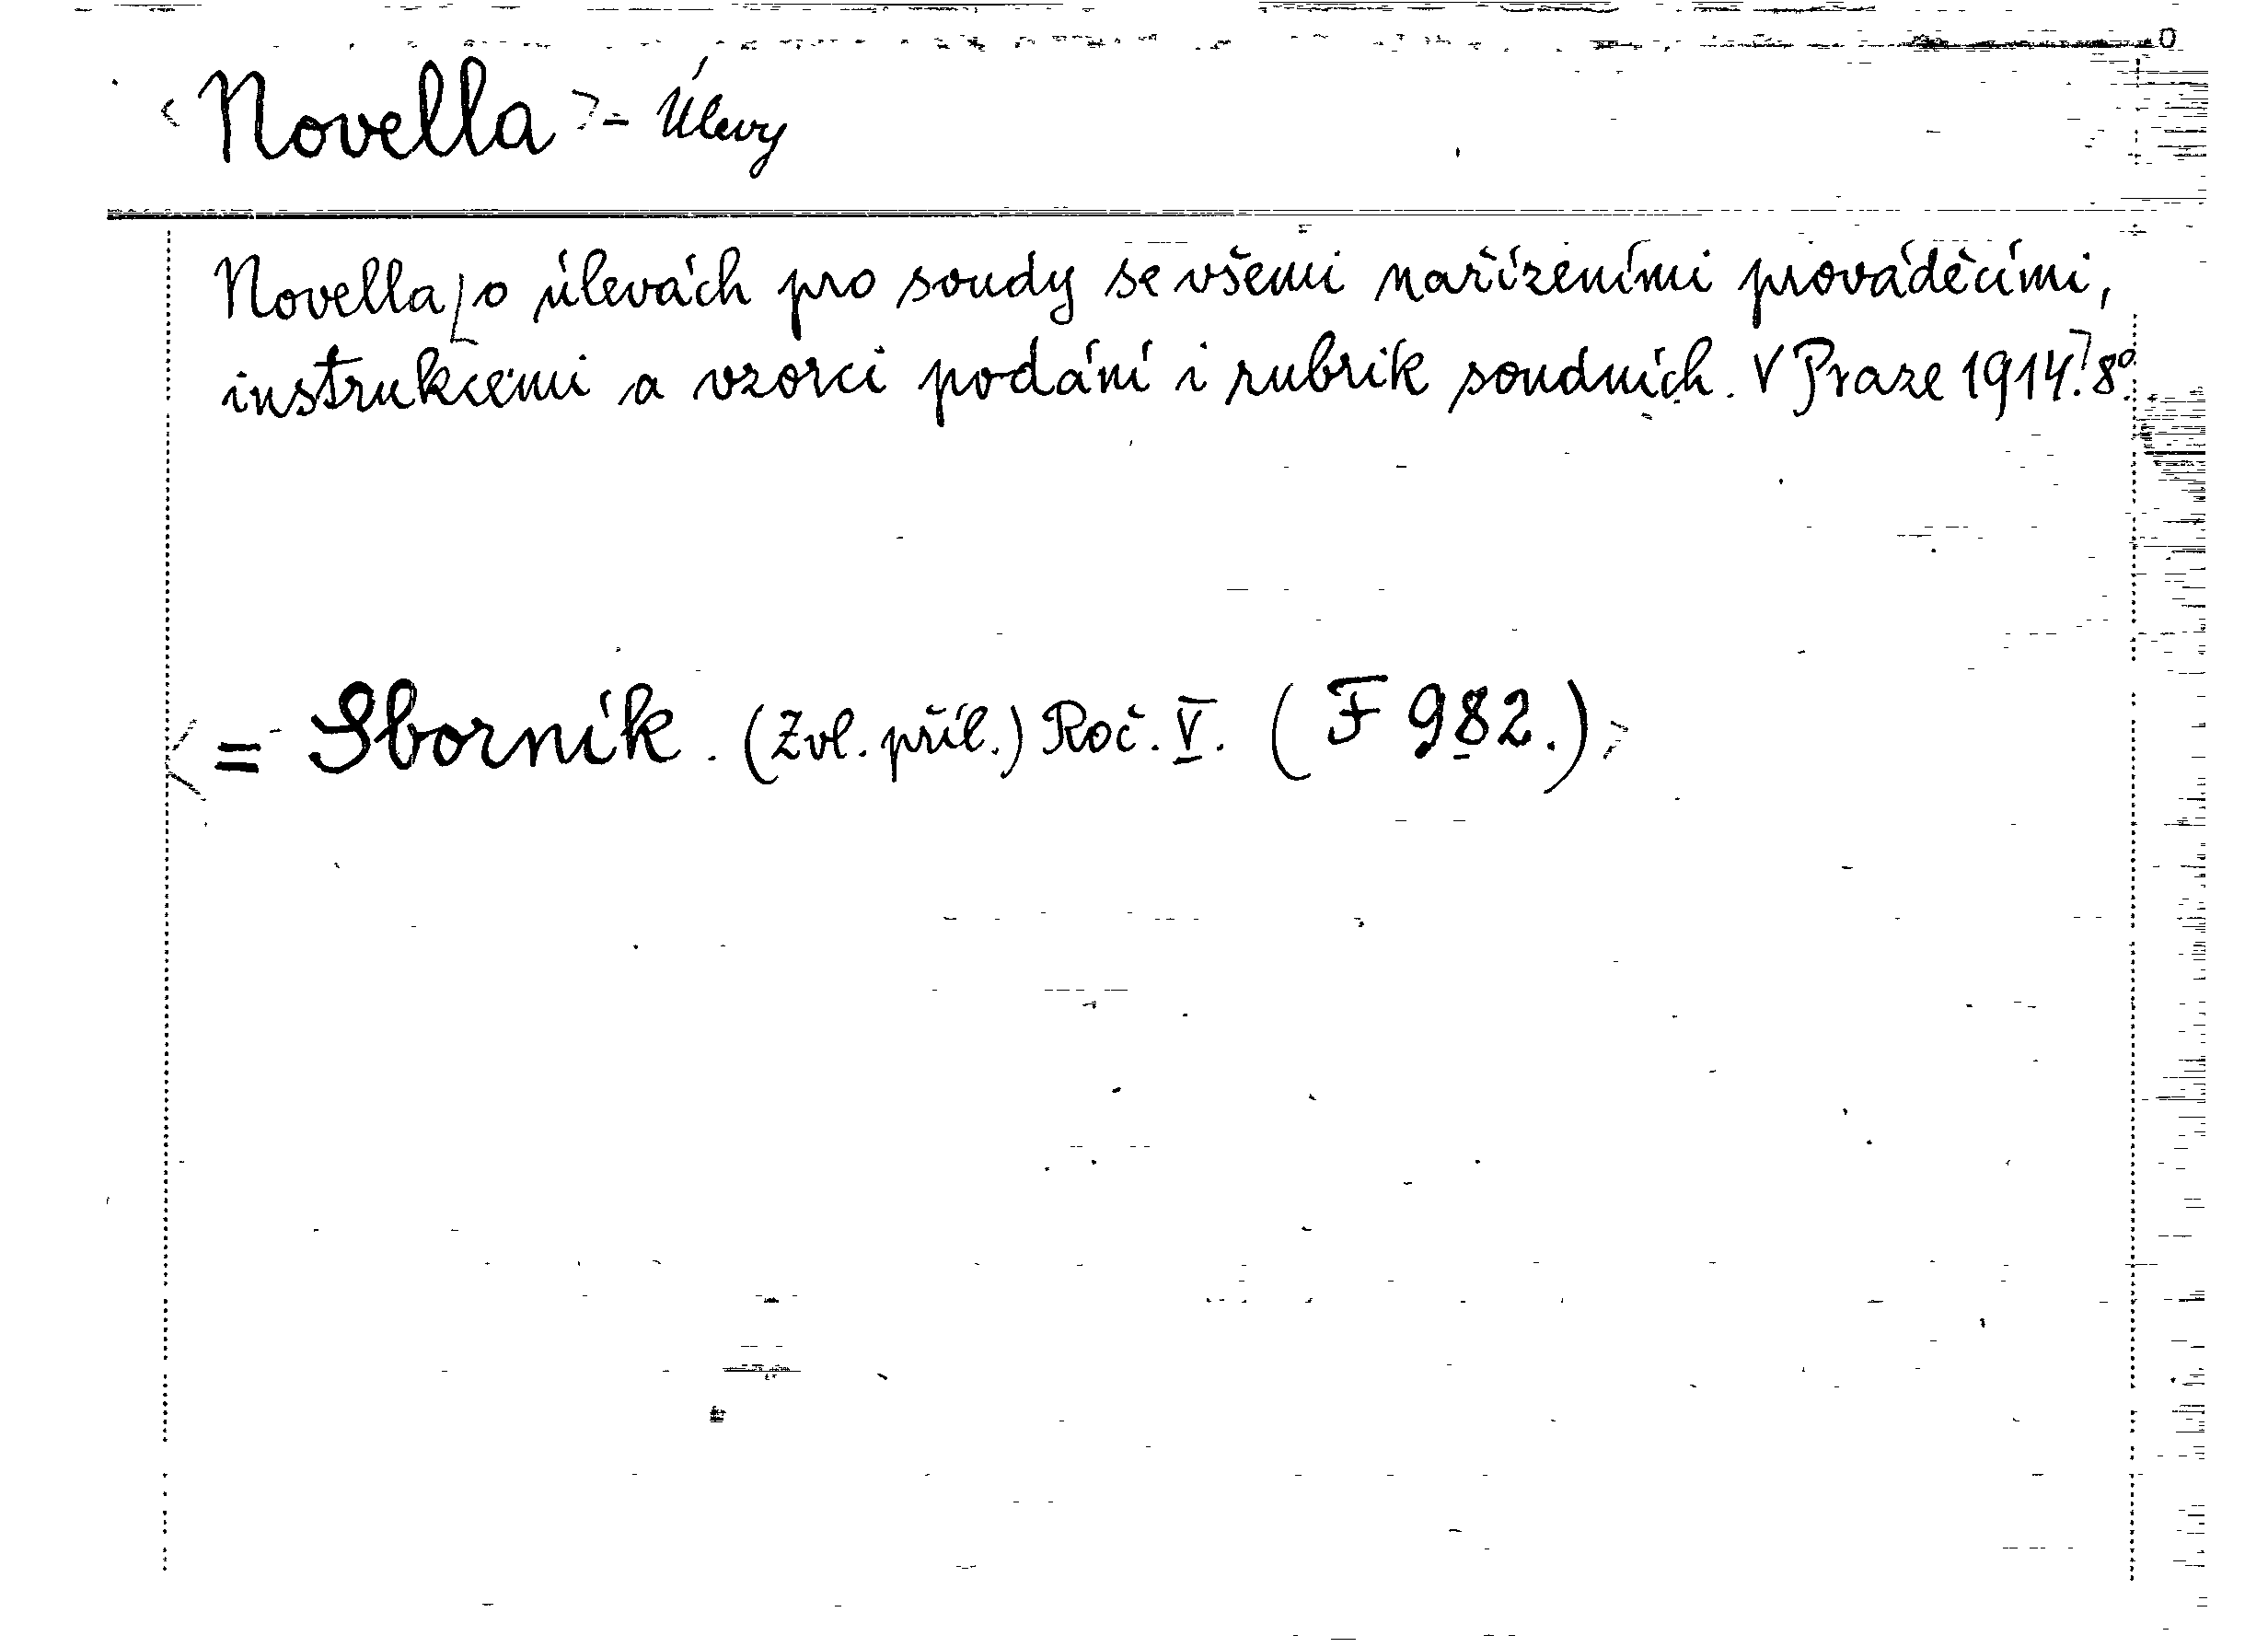 <Novella> - Úlevy
Novella [o úlevách pro soudy se všemi nařízeními prováděcími,
instrukcemi a vzorci podání i rubrik soudních. V Praze 1914.] 8°.
<= Sborník. (Zvl. příl.) Roč. V. (F 982.)>